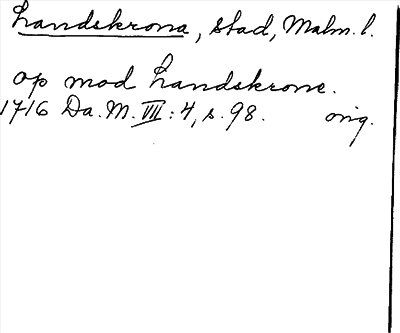 Landskrona, stad, Malm. l.
op mod Landskrone.
1716 Da. M. VII: 4, s. 98. orig.